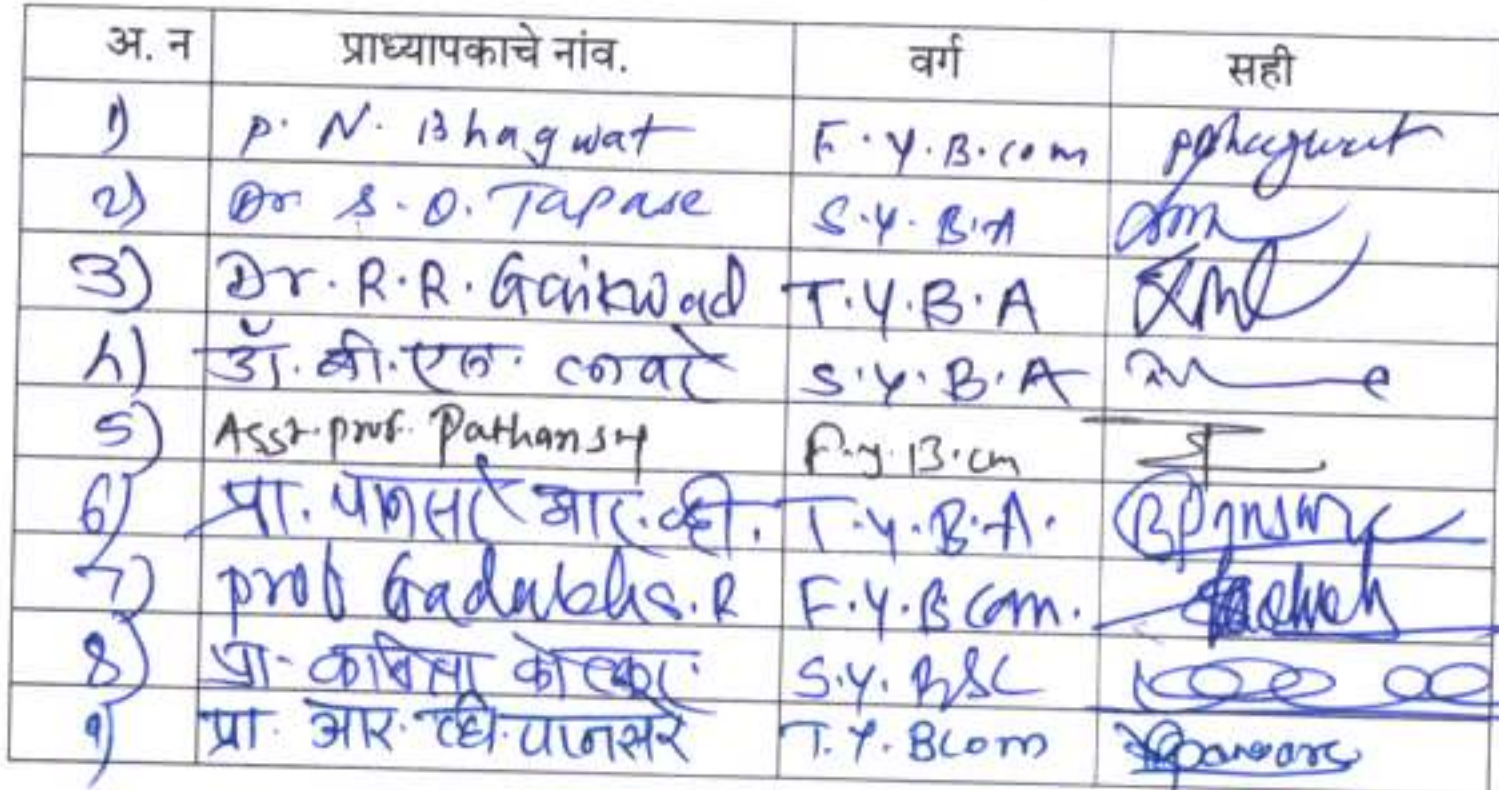 अ. न प्राध्यापकाचे नांव. वर्ग सही
1) P. N. Bhagwat F.Y.B.com pbhagwat
2) Dr S. O. Tapase S.Y.B.A
3) Dr. R. R. Gaikwad T.Y.B.A
4) डॉ. बी. एल. S.Y.B.A
5) Asst. prof. Pathan F.y.B.cm
6) प्रा. पानसरे आर. व्ही. T.Y.B.A.
7) prof F.Y.B com.
8) प्रा. कविता S.Y. BSC
9) प्रा. आर. व्ही. पानसरे T.Y. Bcom